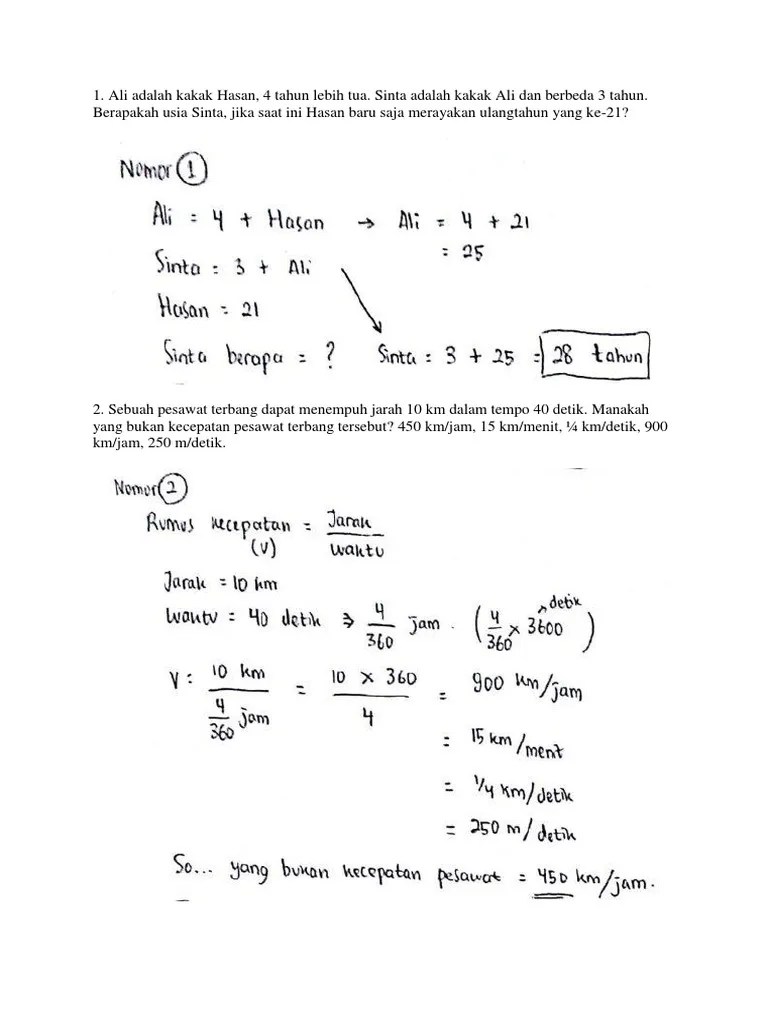 1. Ali adalah kakak Hasan, 4 tahun lebih tua. Sinta adalah kakak Ali dan berbeda 3 tahun.
Berapakah usia Sinta, jika saat ini Hasan baru saja merayakan ulangtahun yang ke-21?
Nomor 1
Ali = 4 + Hasan → Ali = 4 + 21
= 25
Sinta = 3 + Ali
Hasan = 21
Sinta berapa = ? Sinta = 3 + 25 = 28 tahun
2. Sebuah pesawat terbang dapat menempuh jarah 10 km dalam tempo 40 detik. Manakah
yang bukan kecepatan pesawat terbang tersebut? 450 km/jam, 15 km/menit, ¼ km/detik, 900
km/jam, 250 m/detik.
Nomor 2
Rumus kecepatan (V) = Jarak / Waktu
Jarak = 10 km
Waktu = 40 detik ⇒ 4/360 jam . (4/360 × 3600 detik)
V = 10 km / 4/360 jam = 10 × 360 / 4 = 900 km/jam
= 15 km/menit
= 1/4 km/detik
= 250 m/detik
So... yang bukan kecepatan pesawat = 450 km/jam.